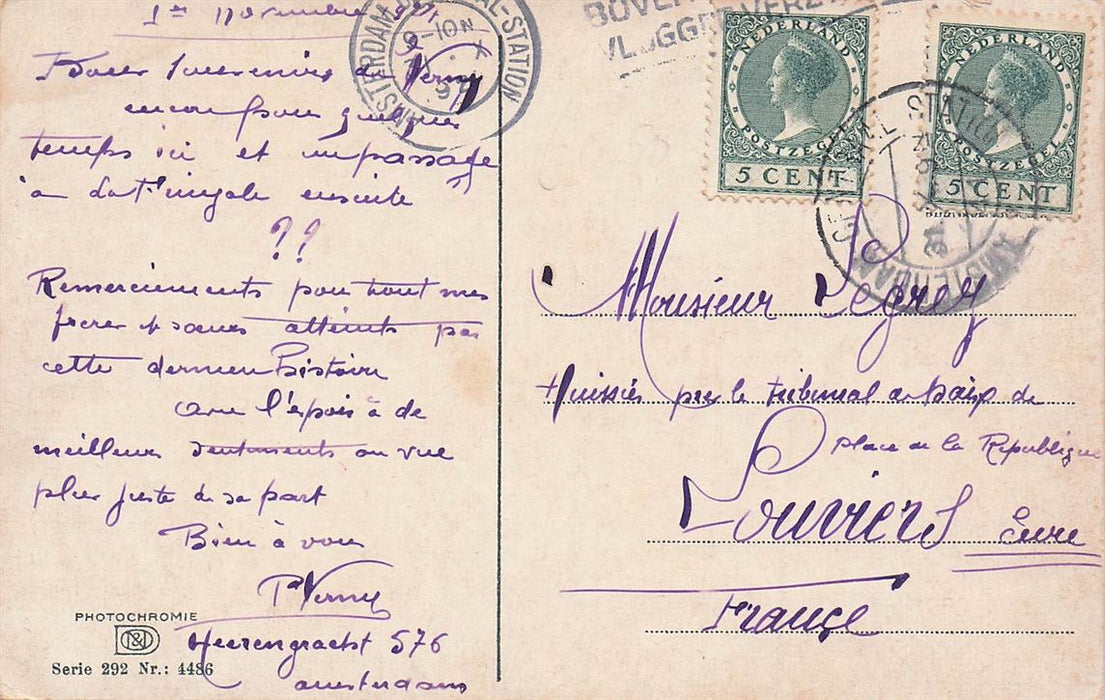 1er Novembre
Bons Souvenirs de Verny
encore pour quelques
temps ici et un passage
à
ensuite
??
Remerciements pour tout mes
frere et sœurs atteints par
cette dernier histoire
l'espoir à de
meilleurs sentiments ou vue
plus juste de sa part
Bien à vous
P Verny
Heerengracht 576
Amsterdam
PHOTOCHROMIE
Serie 292 Nr.: 4486
AMSTERDAM CENTRAAL-STATION
9-10N
X
BOVEN
VLUGGE
NEDERLAND
POSTZEGEL
5 CENT
NEDERLAND
POSTZEGEL
5 CENT
STATION
AMSTERDAM
Monsieur Legrey
Huissier pres le tribunal de paix de
place de la Republique
Louviers Eure
France